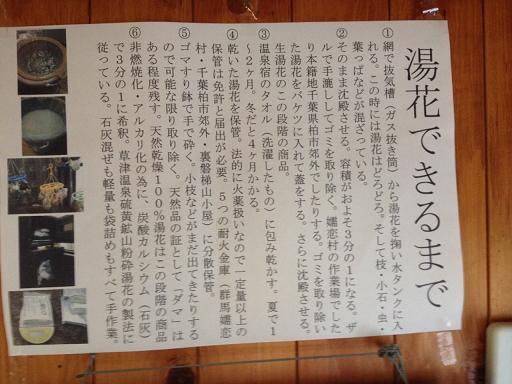 湯花できるまで
①網で抜気槽（ガス抜き筒）から湯花を掬い水タンクに入
れる。この時には湯花はどろどろ。そして枝・小石・虫・
葉っぱなどが混ざっている。
②そのまま沈殿させる。容積がおよそ３分の１になる。ザ
ルで手漉ししてゴミを取り除く。嬬恋村の作業場でした
り本籍地千葉県柏市郊外でしたりする。ゴミを取り除い
た湯花をバケツに入れて蓋をする。さらに沈殿させる。
生湯花のこの段階の商品。
③温泉宿のタオル（洗濯したもの）に包み乾かす。夏で１
〜２ヶ月。冬だと４ヶ月かかる。
④乾いた湯花を保管。法的に火薬扱いなので一定量以上の
保管は免許と届出が必要。５つの耐火金庫（群馬嬬恋
村・千葉柏市郊外・裏磐梯山小屋）に分散保管。
⑤ゴマすり鉢で手で砕く。小枝などがまだ出てきたりする
ので可能な限り取り除く。天然品の証として「ダマ」は
ある程度残す。天然乾燥１００％湯花はこの段階の商品
⑥非燃焼化・アルカリ化の為に、炭酸カルシウム（石灰）
で３分の１に希釈。草津温泉硫黄鉱山粉砕湯花の製法に
従っている。石灰混ぜも軽量も袋詰めもすべて手作業。